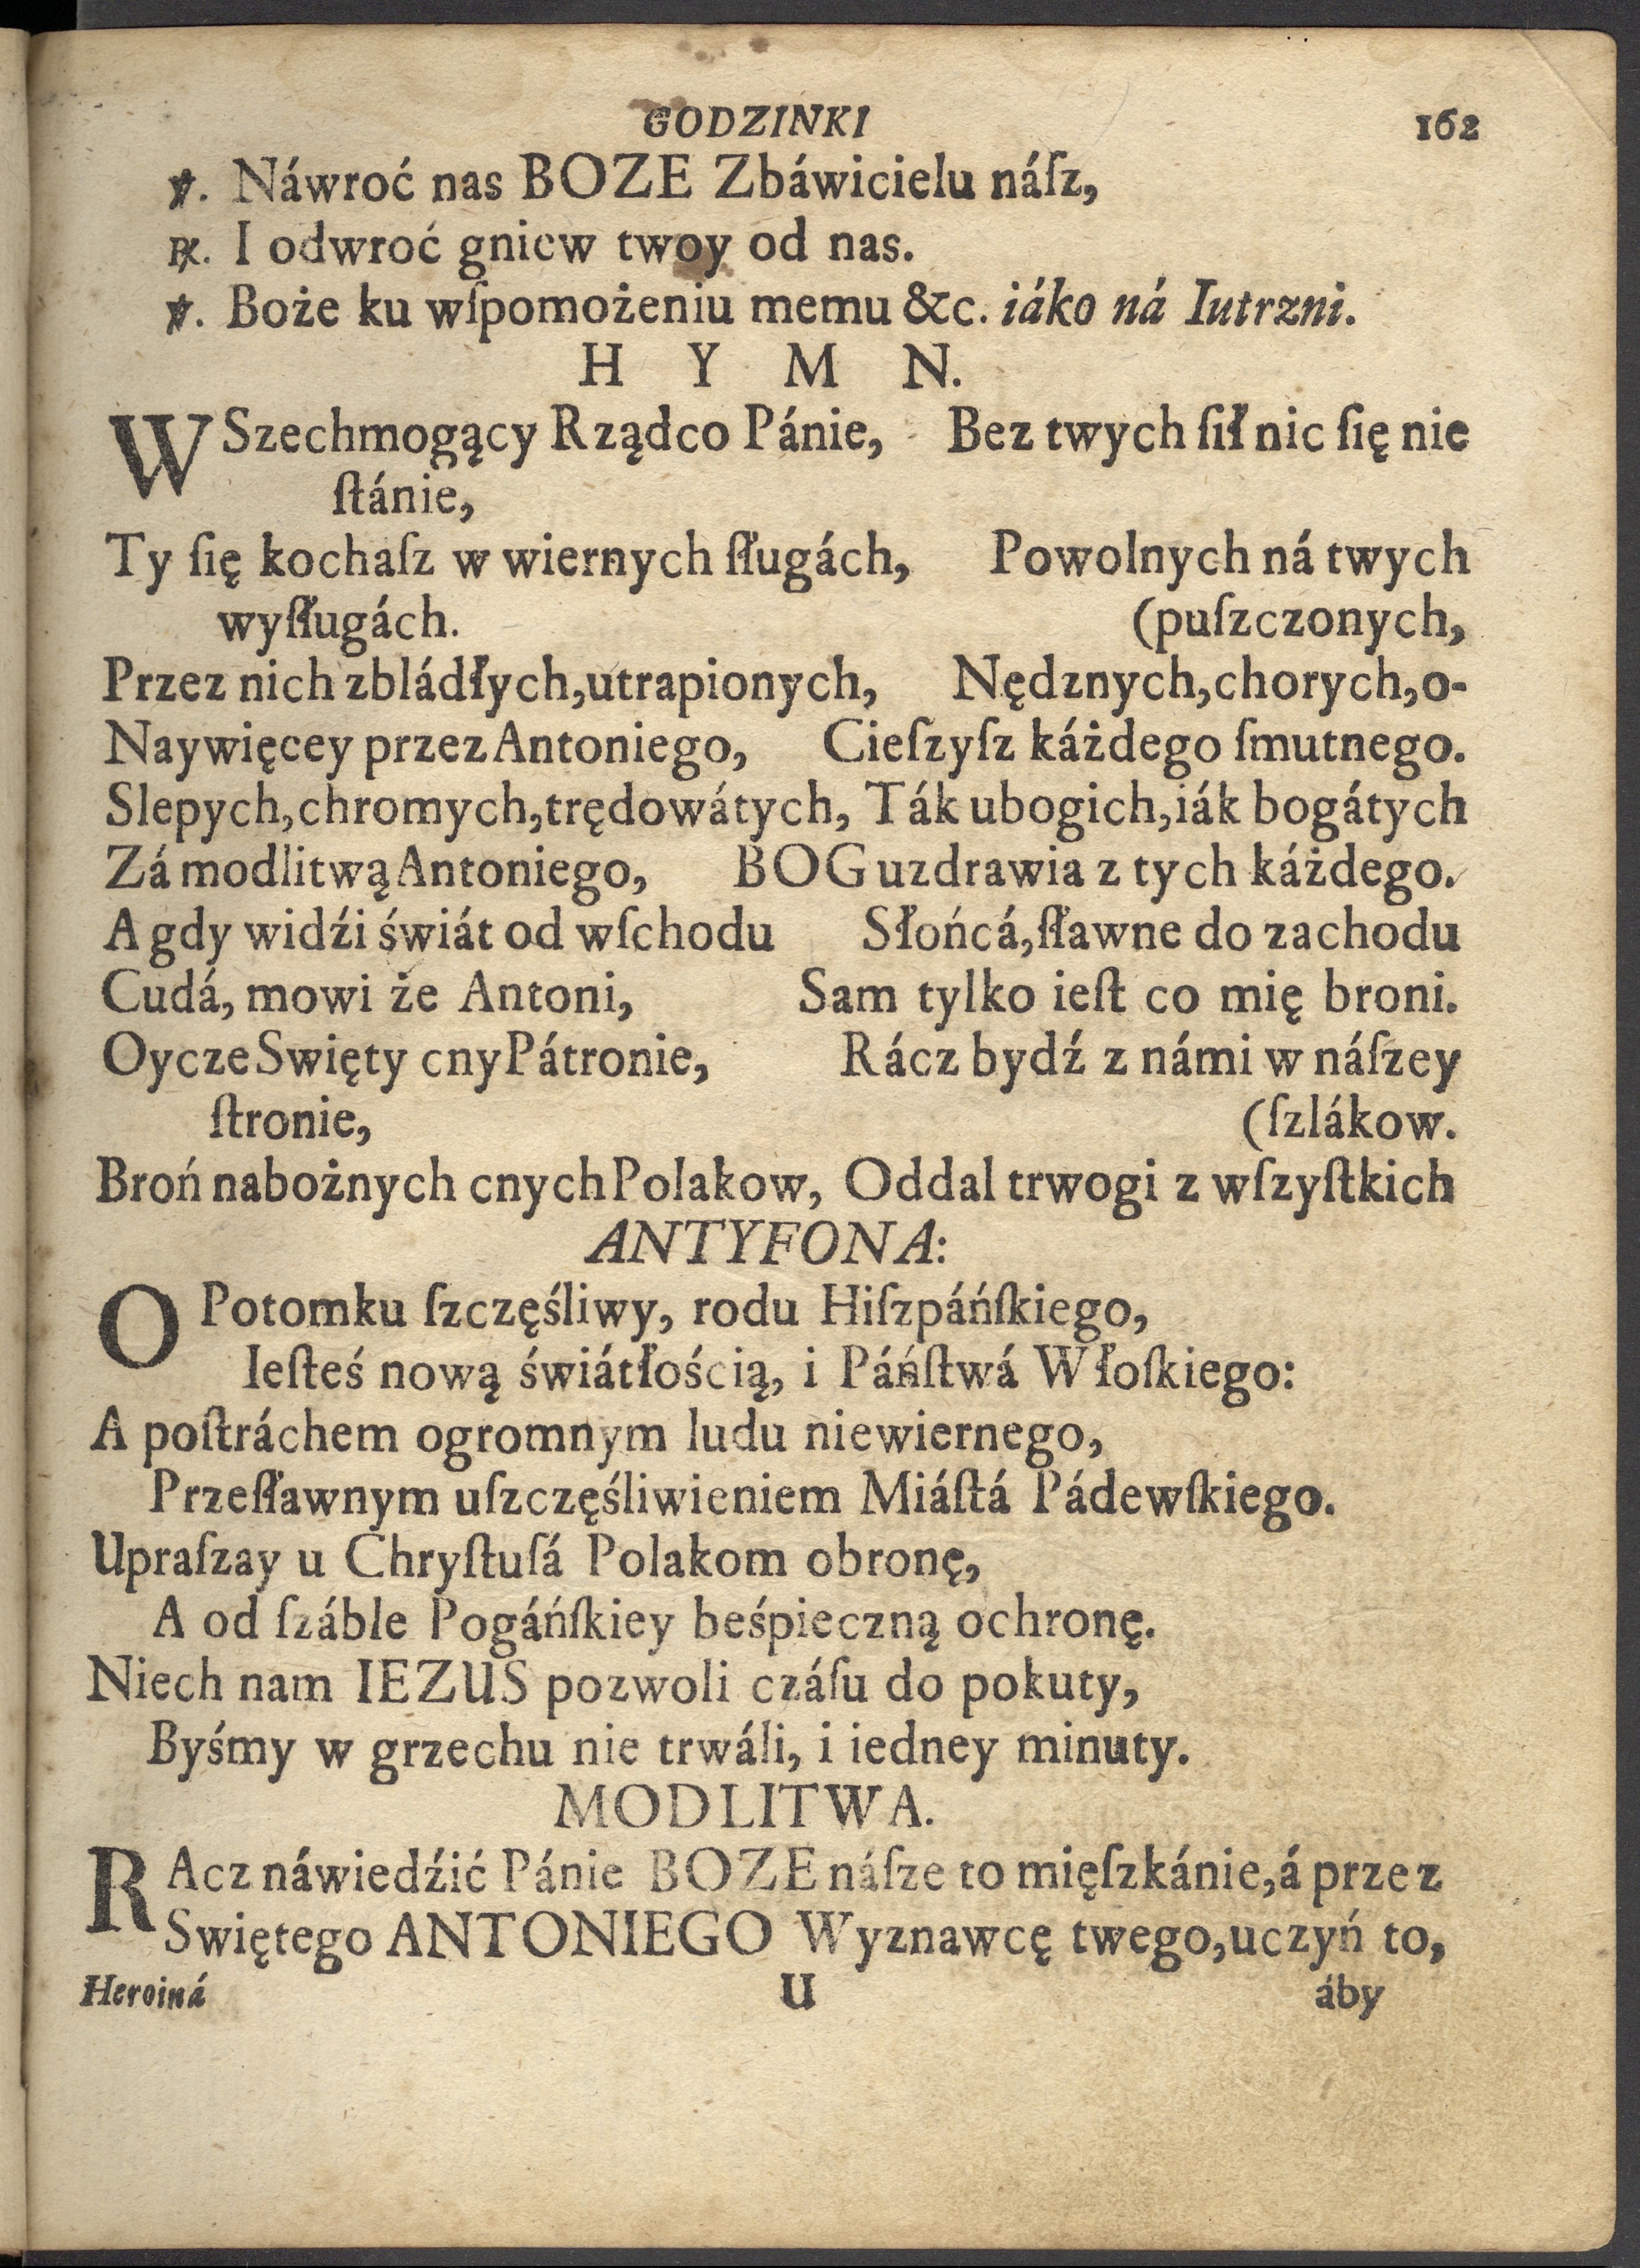 GODZINKI 162
℣. Náwroć nas BOZE Zbáwicielu náſz,
℟. I odwroć gniew twoy od nas.
℣. Boże ku wſpomożeniu memu &c. iáko ná Iutrzni.
H Y M N.
WSzechmogący Rządco Pánie, Bez twych ſił nic ſię nie
ſtánie,
Ty ſię kochaſz w wiernych ſługách, Powolnych ná twych
wyſługách. (puſzczonych,
Przez nich zbládłych,utrapionych, Nędznych,chorych,o-
Naywięcey przez Antoniego, Cieſzyſz káżdego ſmutnego.
Slepych,chromych,trędowátych, Ták ubogich,iák bogátych
Zá modlitwą Antoniego, BOG uzdrawia z tych káżdego.
A gdy widźi świát od wſchodu Słońcá,ſławne do zachodu
Cudá, mowi że Antoni, Sam tylko ieſt co mię broni.
Oycze Swięty cny Pátronie, Rácz bydź z námi w náſzey
ſtronie, (ſzlákow.
Broń nabożnych cnych Polakow, Oddal trwogi z wſzyſtkich
ANTYFONA:
O Potomku ſzczęśliwy, rodu Hiſzpáńſkiego,
Ieſteś nową światłością, i Páńſtwá Włoſkiego:
A poſtráchem ogromnym ludu niewiernego,
Przeſławnym uſzczęśliwieniem Miáſtá Pádewſkiego.
Upraſzay u Chryſtuſá Polakom obronę,
A od ſzáble Pogáńſkiey beśpieczną ochronę.
Niech nam IEZUS pozwoli czáſu do pokuty,
Byśmy w grzechu nie trwáli, i iedney minuty.
MODLITWA.
RAcz náwiedźić Pánie BOZE náſze to mięſzkánie,á przez
Swiętego ANTONIEGO Wyznawcę twego,uczyń to,
Heroiná U áby